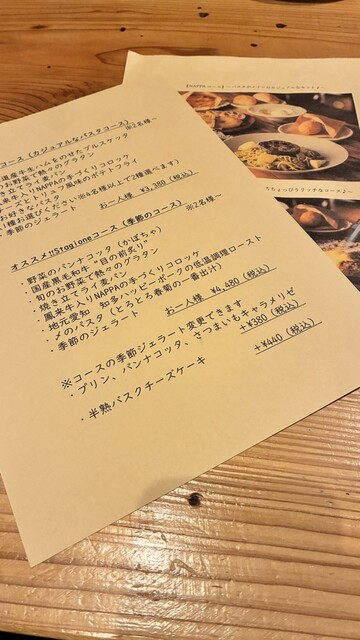 コース (カジュアルなパスタコース) ※2名様～
道産牛生ハムをのせたブルスケッタ
お野菜で熱々のグラタン
き立てライ麦パン
来牛入りNAPPAの手づくりコロッケ
ズとトリュフ風味のポテトフライ
お好きなパスタ
1種お選びください※4名様以上で2種選べます)
季節のジェラート
お一人様 ¥3,380(税込)
オススメ!!Stagioneコース (季節のコース) ※2名様～
・野菜のパンナコッタ (かぼちゃ)
・国産黒毛和牛 "目の前炙り"
・旬のお野菜で熱々のグラタン
・焼き立てライ麦パン
・鳳来牛入りNAPPAの手づくりコロッケ
・地元愛知 知多ハッピーポークの低温調理ロースト
・〆のパスタ (とろとろ春菊の一番出汁)
・季節のジェラート
お一人様 ¥4,480(税込)
※コースの季節ジェラート変更できます
・プリン、パンナコッタ、さつまいもキャラメリゼ
+¥380(税込)
・半熟バスクチーズケーキ
+¥440(税込)